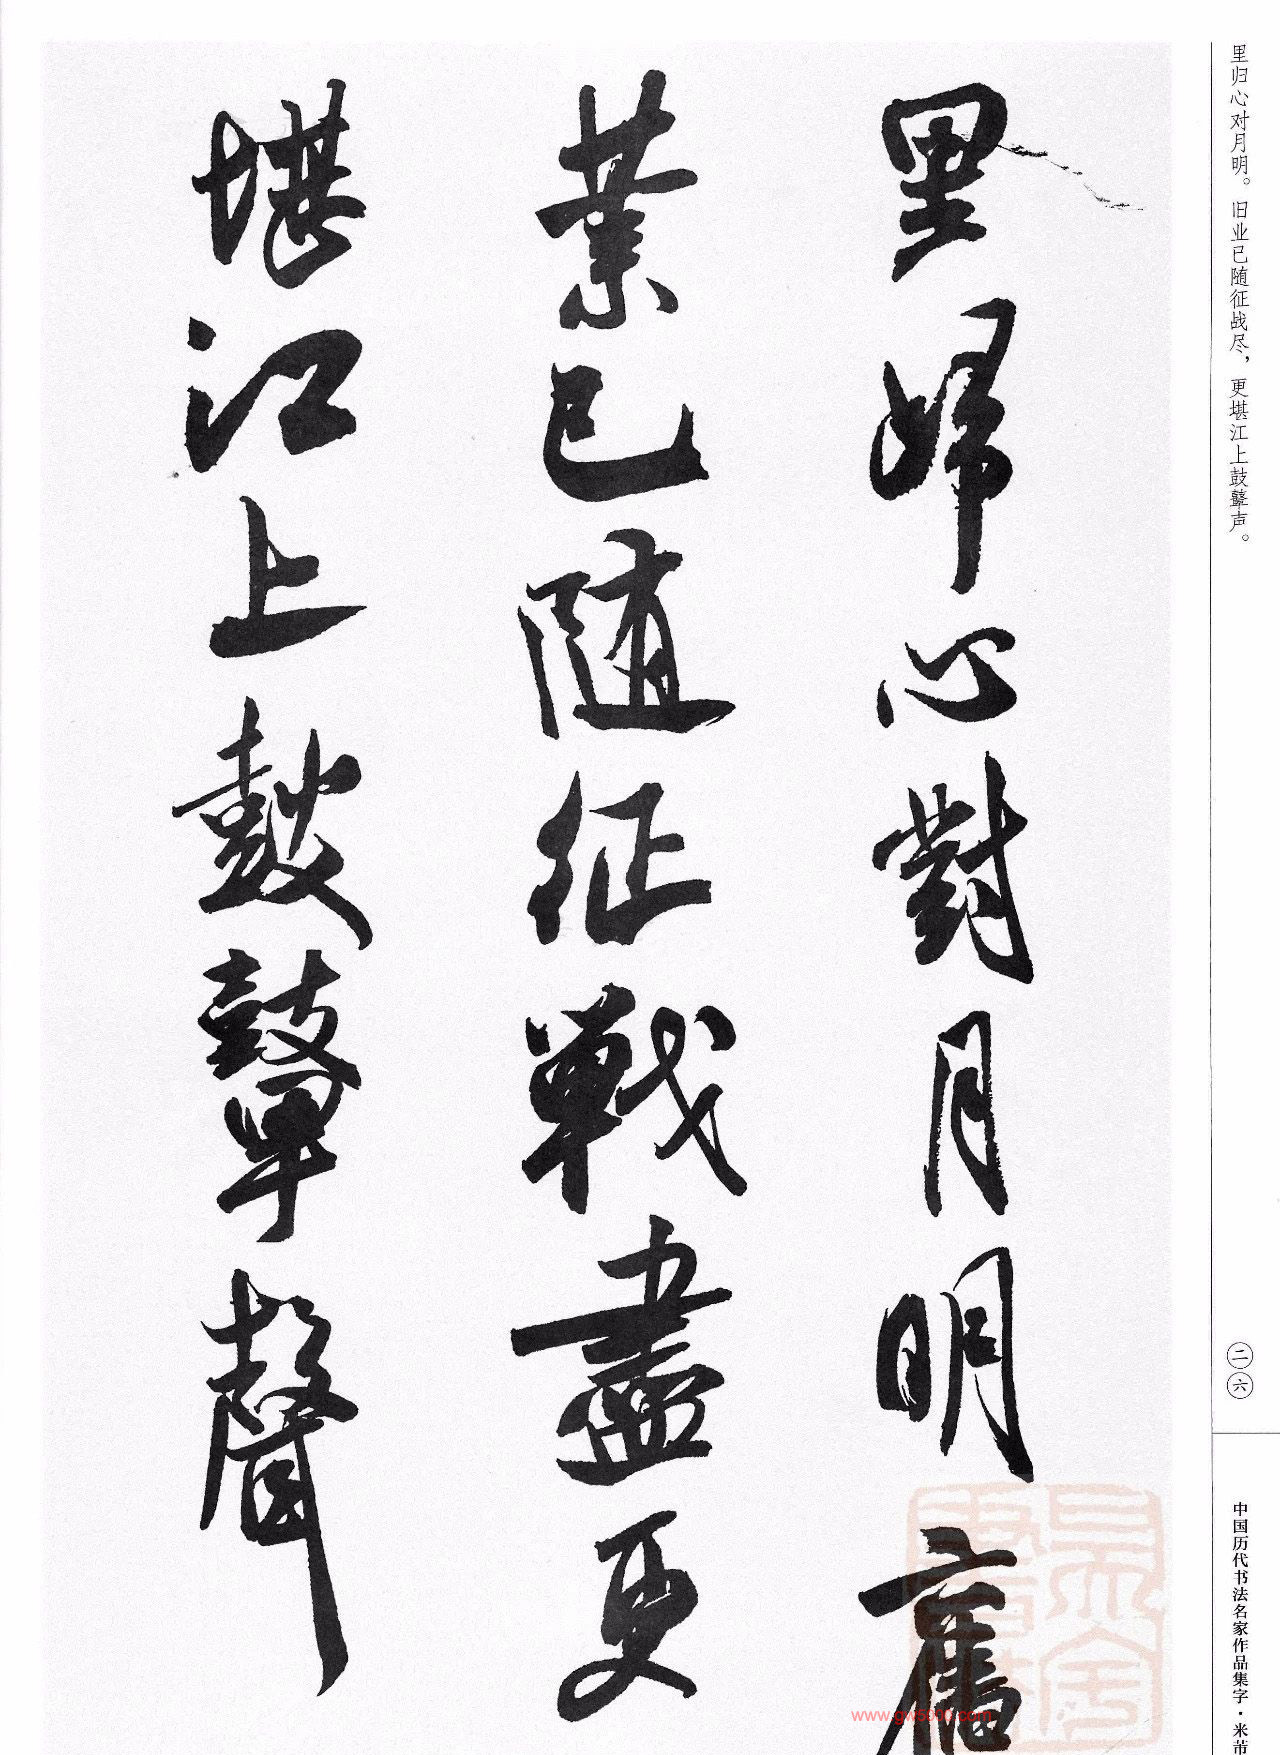 里归心对月明。旧业已随征战尽，更堪江上鼓鼙声。
里歸心對月明舊
業已隨征戰盡更
堪江上鼓鼙聲
二六
中国历代书法名家作品集字·米芾
www.gw5000.com